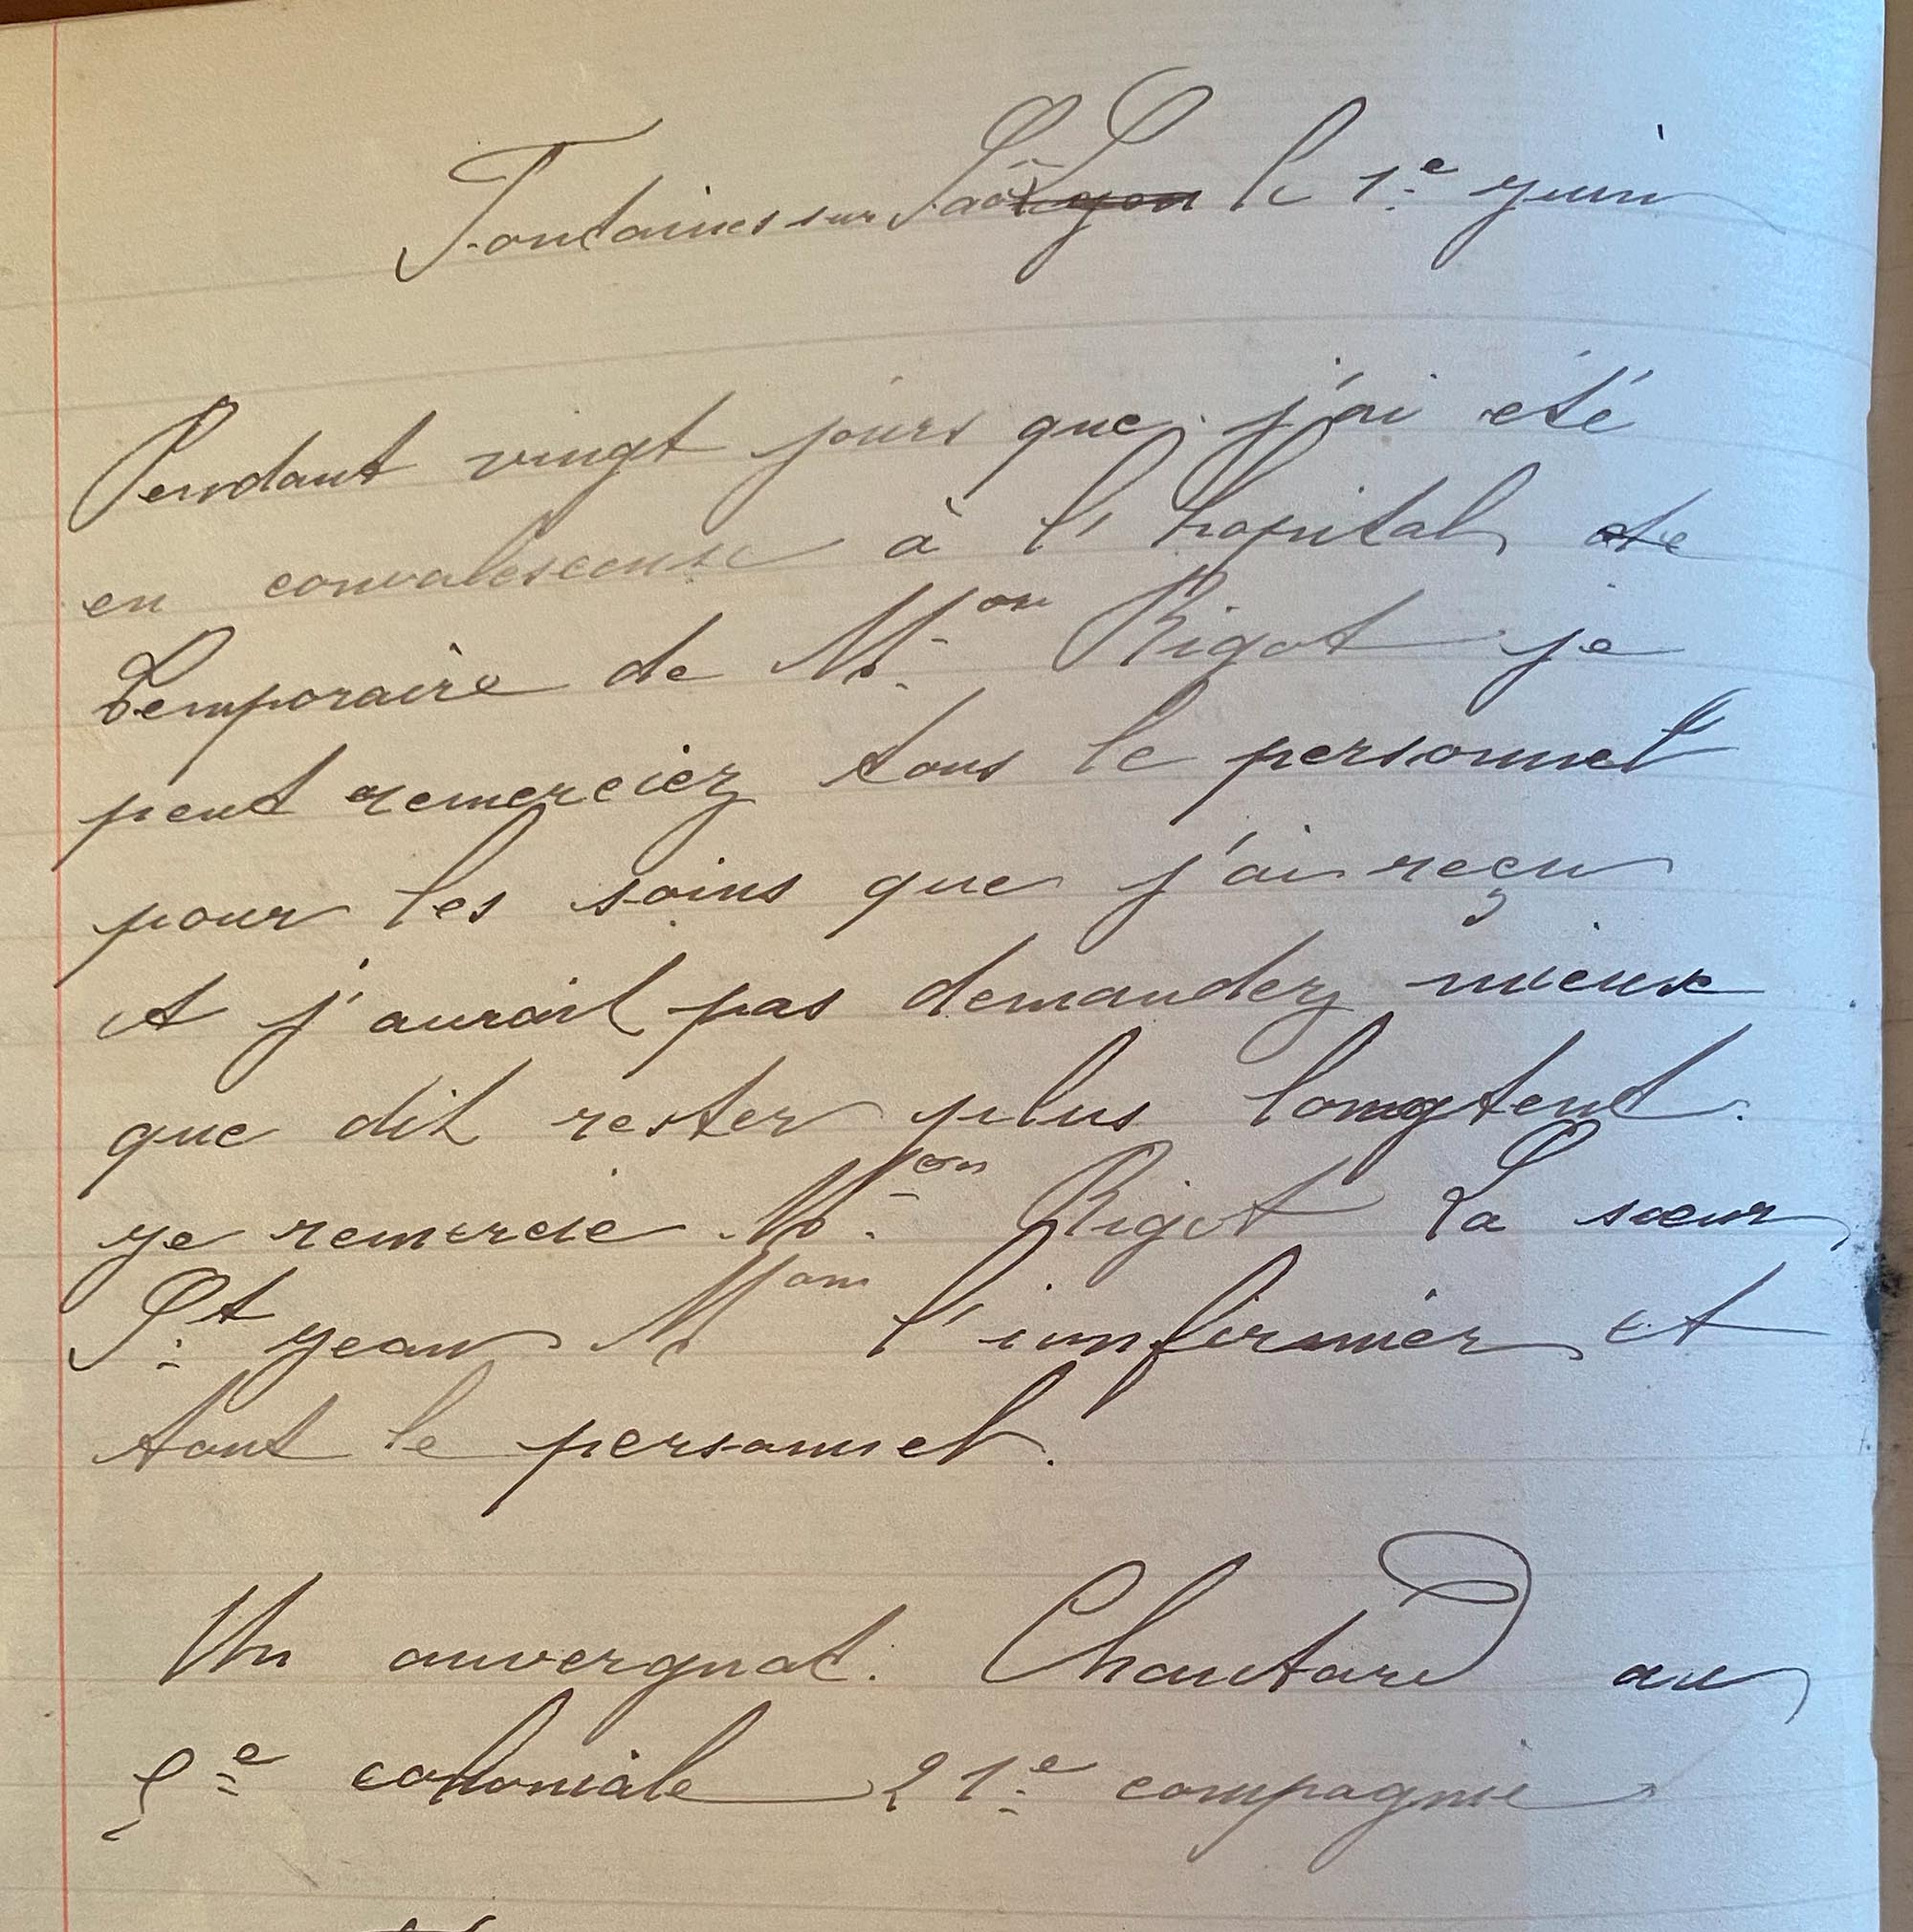 Fontaines sur Saô Lyon le 1e yuin
Pendant vingt jours que j'ai été
en convalescense à l'hopital de
temporaire de Mon Rigot je
peut remerciez tous le personnel
pour les soins que j'ai reçu
et j'aurait pas demandez mieux
que dit rester plus longtent.
ye remercie Mon Rigot La sœur
St yean Mam l'imfirmièr et
tout le personnel.
Un auvergnat. Chautard au
5e coloniale 21e compagnie